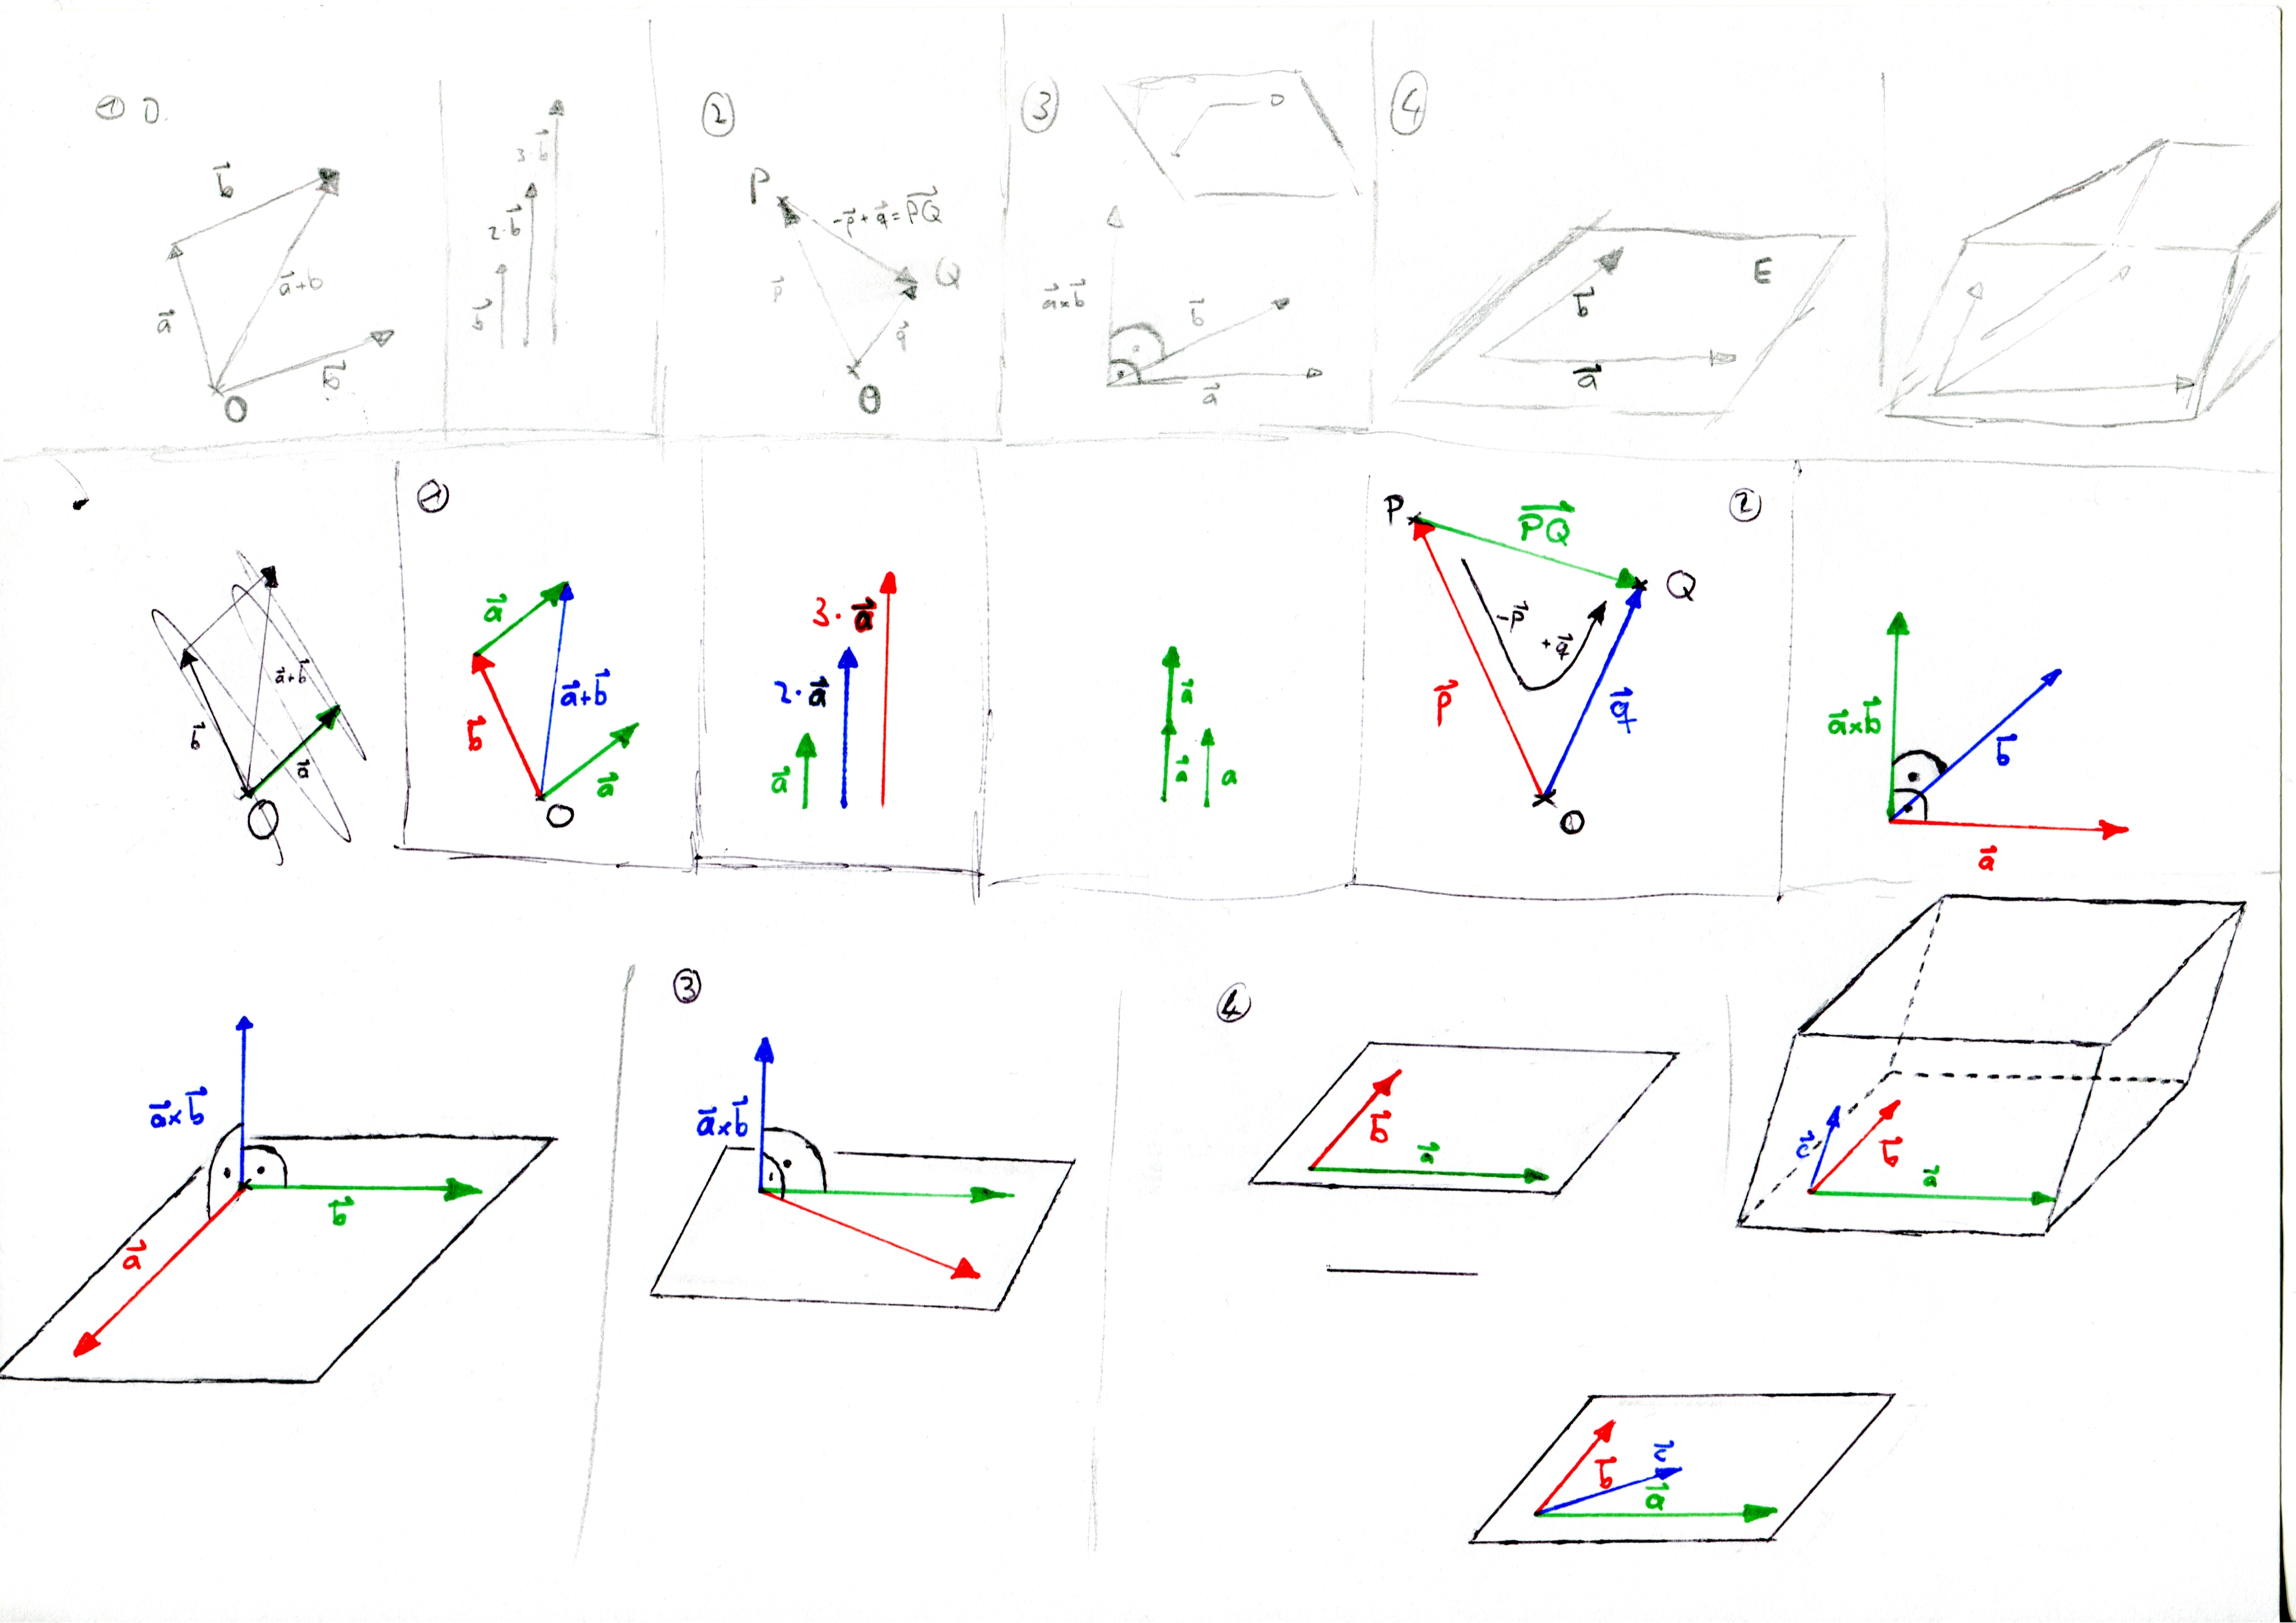 ① 0.
b⃗
a⃗
a⃗+b
b⃗
O
3·b⃗
2·b⃗
b⃗
②
P
-p⃗+q⃗=PQ⃗
Q
p⃗
q⃗
O
③
a⃗×b⃗
b⃗
a⃗
④
E
b⃗
a⃗
b⃗
a⃗+b⃗
a⃗
O
①
a⃗
b⃗
a⃗+b⃗
a⃗
O
3·a⃗
2·a⃗
a⃗
a⃗
a⃗
a
P
PQ⃗
Q
-p⃗
+q⃗
p⃗
q⃗
O
②
a⃗×b⃗
b⃗
a⃗
a⃗×b⃗
b⃗
a⃗
③
a⃗×b⃗
④
b⃗
a⃗
c⃗
b⃗
a⃗
b⃗
c⃗
a⃗